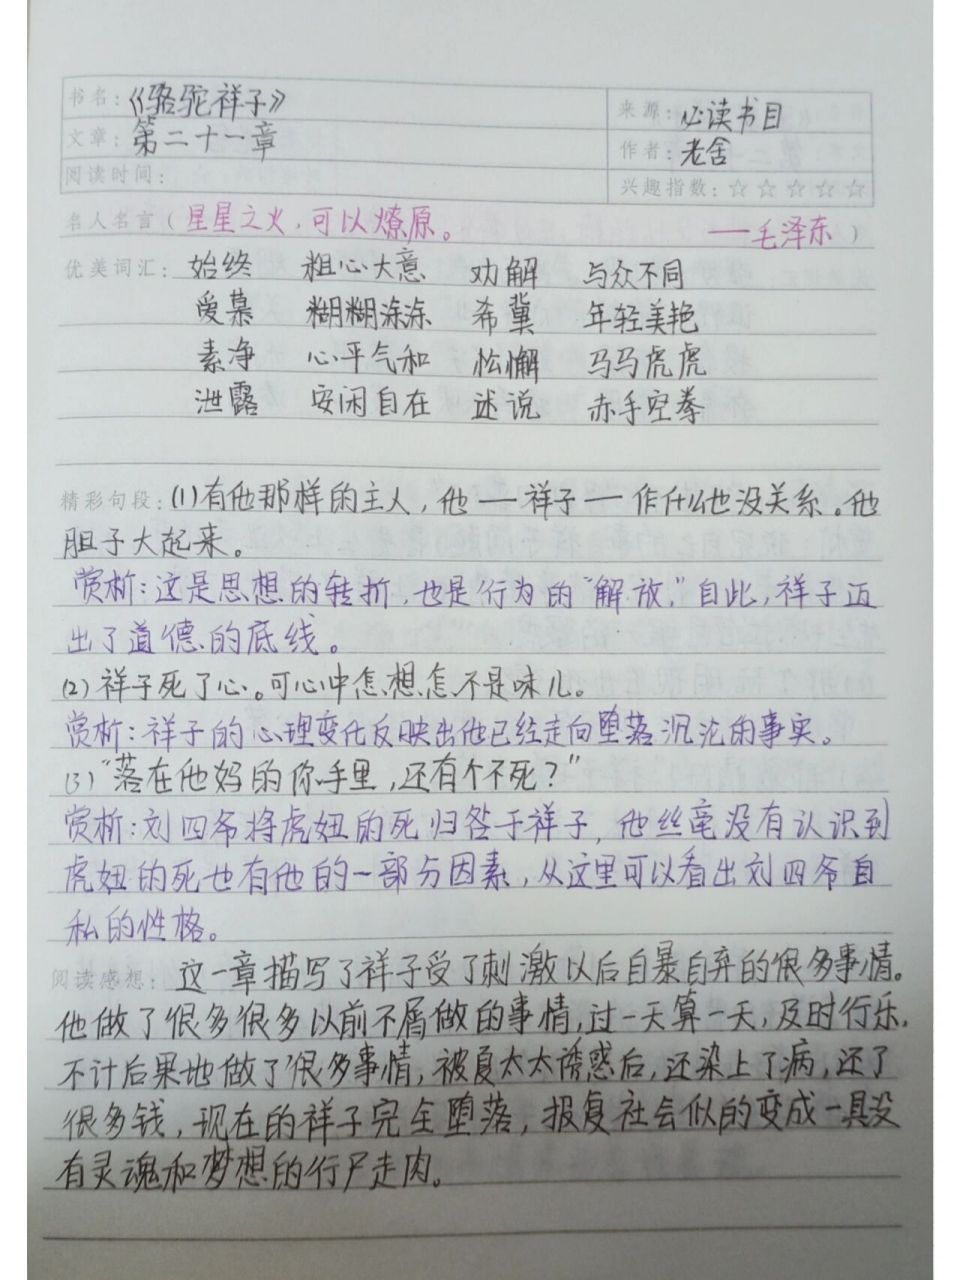 书名：《骆驼祥子》 来源：必读书目
文章：第二十一章 作者：老舍
阅读时间： 兴趣指数：☆☆☆☆☆
名人名言（星星之火，可以燎原。 ——毛泽东）
优美词汇：始终 粗心大意 劝解 与众不同
爱慕 糊糊涂涂 希冀 年轻美艳
素净 心平气和 松懈 马马虎虎
泄露 安闲自在 述说 赤手空拳
精彩句段：(1)有他那样的主人，他一祥子一作什么也没关系。他
胆子大起来。
赏析：这是思想的转折，也是行为的“解放”，自此，祥子迈
出了道德的底线。
(2)祥子死了心。可心中怎想怎不是味儿。
赏析：祥子的心理变化反映出他已经走向堕落沉沦的事实。
(3)“落在他妈的你手里，还有个不死？”
赏析：刘四爷将虎妞的死归咎于祥子，他丝毫没有认识到
虎妞的死也有他的一部分因素，从这里可以看出刘四爷自
私的性格。
阅读感想：这一章描写了祥子受了刺激以后自暴自弃的很多事情。
他做了很多很多以前不屑做的事情，过一天算一天，及时行乐，
不计后果地做了很多事情，被夏太太诱惑后，还染上了病，还了
很多钱，现在的祥子完全堕落，报复社会似的变成一具没
有灵魂和梦想的行尸走肉。